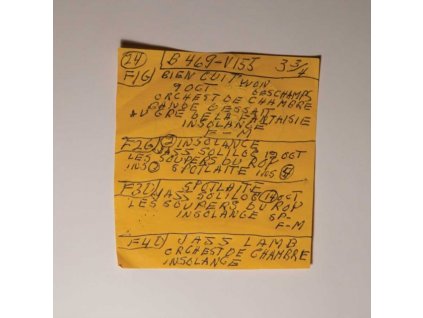 24 B 469-V155 3 3/4
F1G BIEN CUIT WON
9 OCT DESCHAMPS
ORCHEST DE CHAMBRE
BANDE DESSAIT
AU GRE DE LA FANTAISIE
INSOLANGE
F-M
F2G INSOLANGE
JASS SOLILOG 19 OCT
LES SOUPERS DU ROY
INS SPOTLAITE INS
F3D SPOTLAITE
JASS SOLILOG OCT
LES SOUPERS DU ROY
INSOLANGE SP-
F-M
F4D JASS LAMB
ORCHEST DE CHAMBRE
INSOLANGE